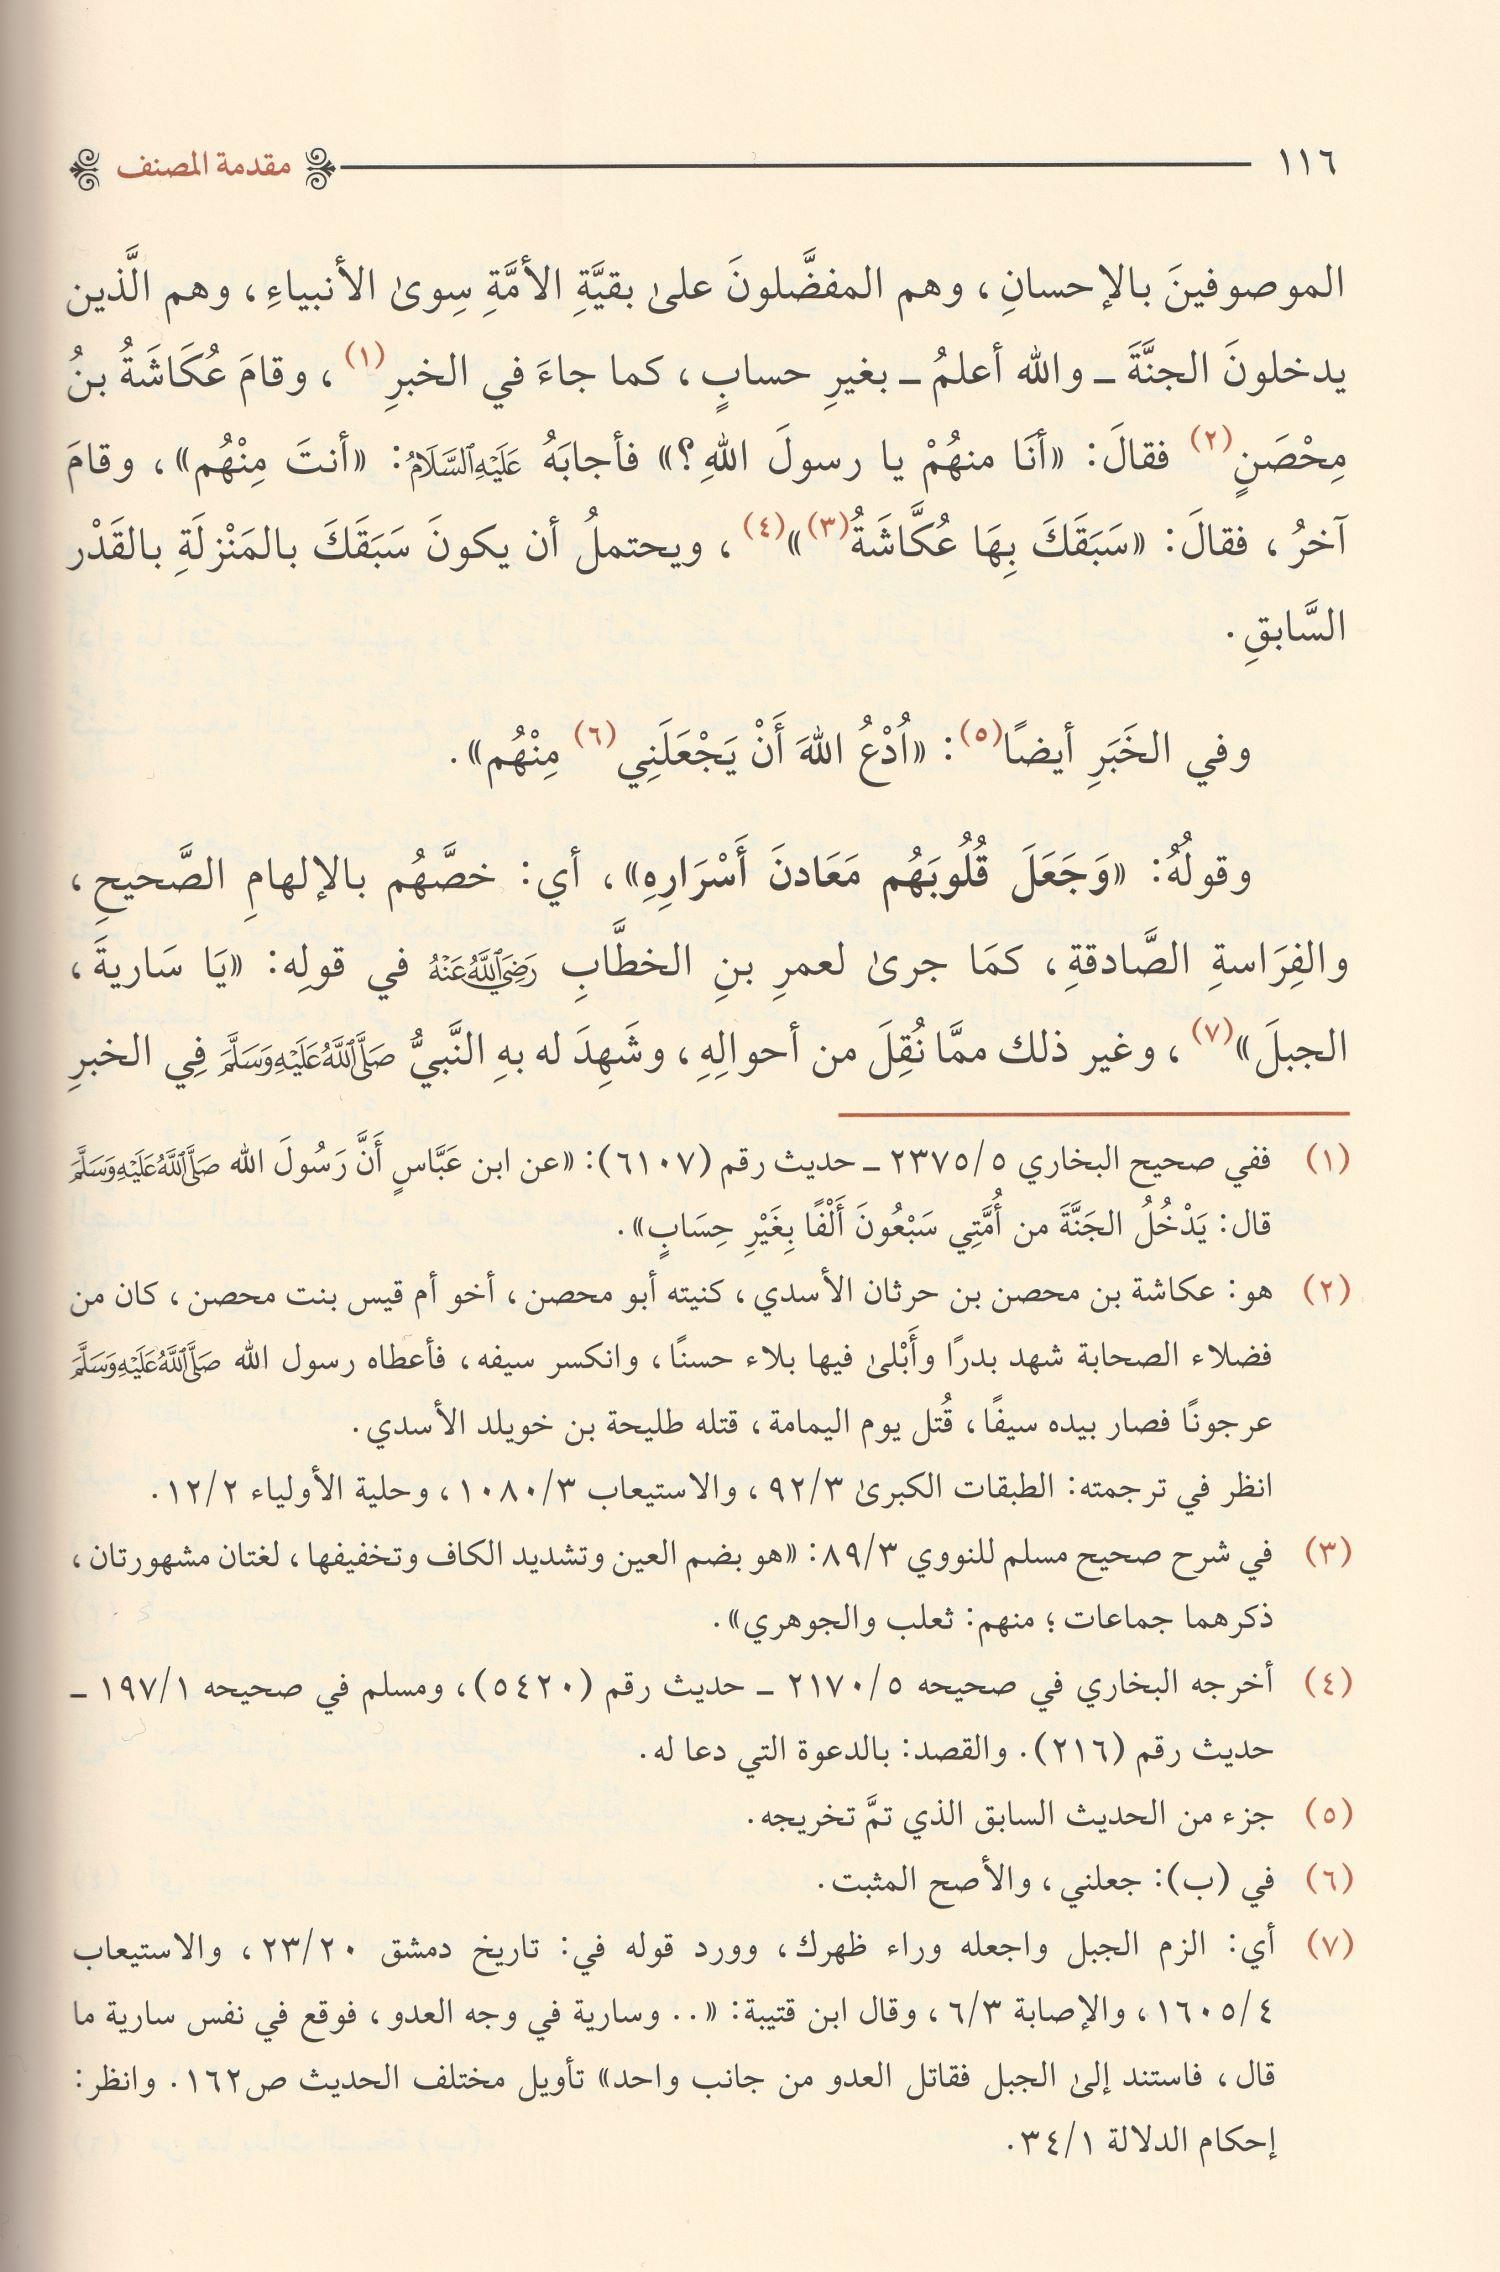 ١١٦ مقدمة المصنف
الموصوفينَ بالإحسانِ، وهم المفضَّلونَ علىٰ بقيَّةِ الأمَّةِ سِوىٰ الأنبياءِ، وهم الَّذين
يدخلونَ الجنَّةَ ـ والله أعلمُ ـ بغيرِ حسابٍ، كما جاءَ في الخبرِ(١)، وقامَ عُكَاشَةُ بنُ
مِحْصَنٍ(٢) فقالَ: «أنَا منهُمْ يا رسولَ اللهِ؟» فأجابَهُ عَلَيْهِ السَّلَامُ: «أنتَ مِنْهُم»، وقامَ
آخرُ، فقالَ: «سَبَقَكَ بِهَا عُكَّاشَةُ(٣)»(٤)، ويحتملُ أن يكونَ سَبَقَكَ بالمَنْزلَةِ بالقَدْر
السَّابقِ.
وفي الخَبَرِ أيضًا(٥): «اُدْعُ اللهَ أَنْ يَجْعَلَنِي(٦) مِنْهُم».
وقولُهُ: «وَجَعَلَ قُلُوبَهُم مَعَادنَ أَسْرَارِهِ»، أي: خصَّهُم بالإلهامِ الصَّحيحِ،
والفِرَاسةِ الصَّادقةِ، كمَا جرىٰ لعمرِ بنِ الخطَّابِ رَضِيَ اللَّهُ عَنْهُ في قولِه: «يَا سَاريةَ،
الجبلَ»(٧)، وغير ذلك ممَّا نُقِلَ من أحوالِهِ، وشَهِدَ له بهِ النَّبيُّ صَلَّى اللَّهُ عَلَيْهِ وَسَلَّمَ فِي الخبرِ
(١) ففي صحيح البخاري ٢٣٧٥/٥ ـ حديث رقم (٦١٠٧): «عن ابن عَبَّاسٍ أَنَّ رَسُولَ الله صَلَّى اللَّهُ عَلَيْهِ وَسَلَّمَ
قال: يَدْخُلُ الجَنَّةَ من أُمَّتِي سَبْعُونَ أَلْفًا بِغَيْرِ حِسَابٍ».
(٢) هو: عكاشة بن محصن بن حرثان الأسدي، كنيته أبو محصن، أخو أم قيس بنت محصن، كان من
فضلاء الصحابة شهد بدرًا وأَبْلىٰ فيها بلاء حسنًا، وانكسر سيفه، فأعطاه رسول الله صَلَّى اللَّهُ عَلَيْهِ وَسَلَّمَ
عرجونًا فصار بيده سيفًا، قُتل يوم اليمامة، قتله طليحة بن خويلد الأسدي.
انظر في ترجمته: الطبقات الكبرىٰ ٩٢/٣، والاستيعاب ١٠٨٠/٣، وحلية الأولياء ١٢/٢.
(٣) في شرح صحيح مسلم للنووي ٨٩/٣: «هو بضم العين وتشديد الكاف وتخفيفها، لغتان مشهورتان،
ذكرهما جماعات؛ منهم: ثعلب والجوهري».
(٤) أخرجه البخاري في صحيحه ٢١٧٠/٥ ـ حديث رقم (٥٤٢٠)، ومسلم في صحيحه ١٩٧/١ ـ
حديث رقم (٢١٦). والقصد: بالدعوة التي دعا له.
(٥) جزء من الحديث السابق الذي تمَّ تخريجه.
(٦) في (ب): جعلني، والأصح المثبت.
(٧) أي: الزم الجبل واجعله وراء ظهرك، وورد قوله في: تاريخ دمشق ٢٣/٢٠، والاستيعاب
١٦٠٥/٤، والإصابة ٦/٣، وقال ابن قتيبة: «.. وسارية في وجه العدو، فوقع في نفس سارية ما
قال، فاستند إلىٰ الجبل فقاتل العدو من جانب واحد» تأويل مختلف الحديث ص١٦٢. وانظر:
إحكام الدلالة ٣٤/١.